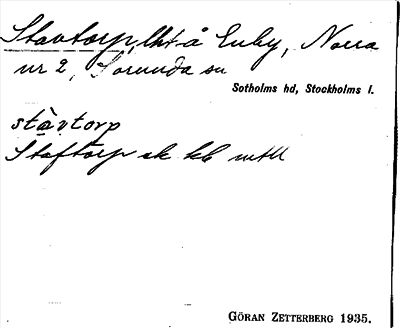 Stavtorp, lht å Enby, Norra
nr 2, Sorunda sn
Sotholms hd, Stockholms l.
stàvtorp
Staftorp ek kb
GÖRAN ZETTERBERG 1935.